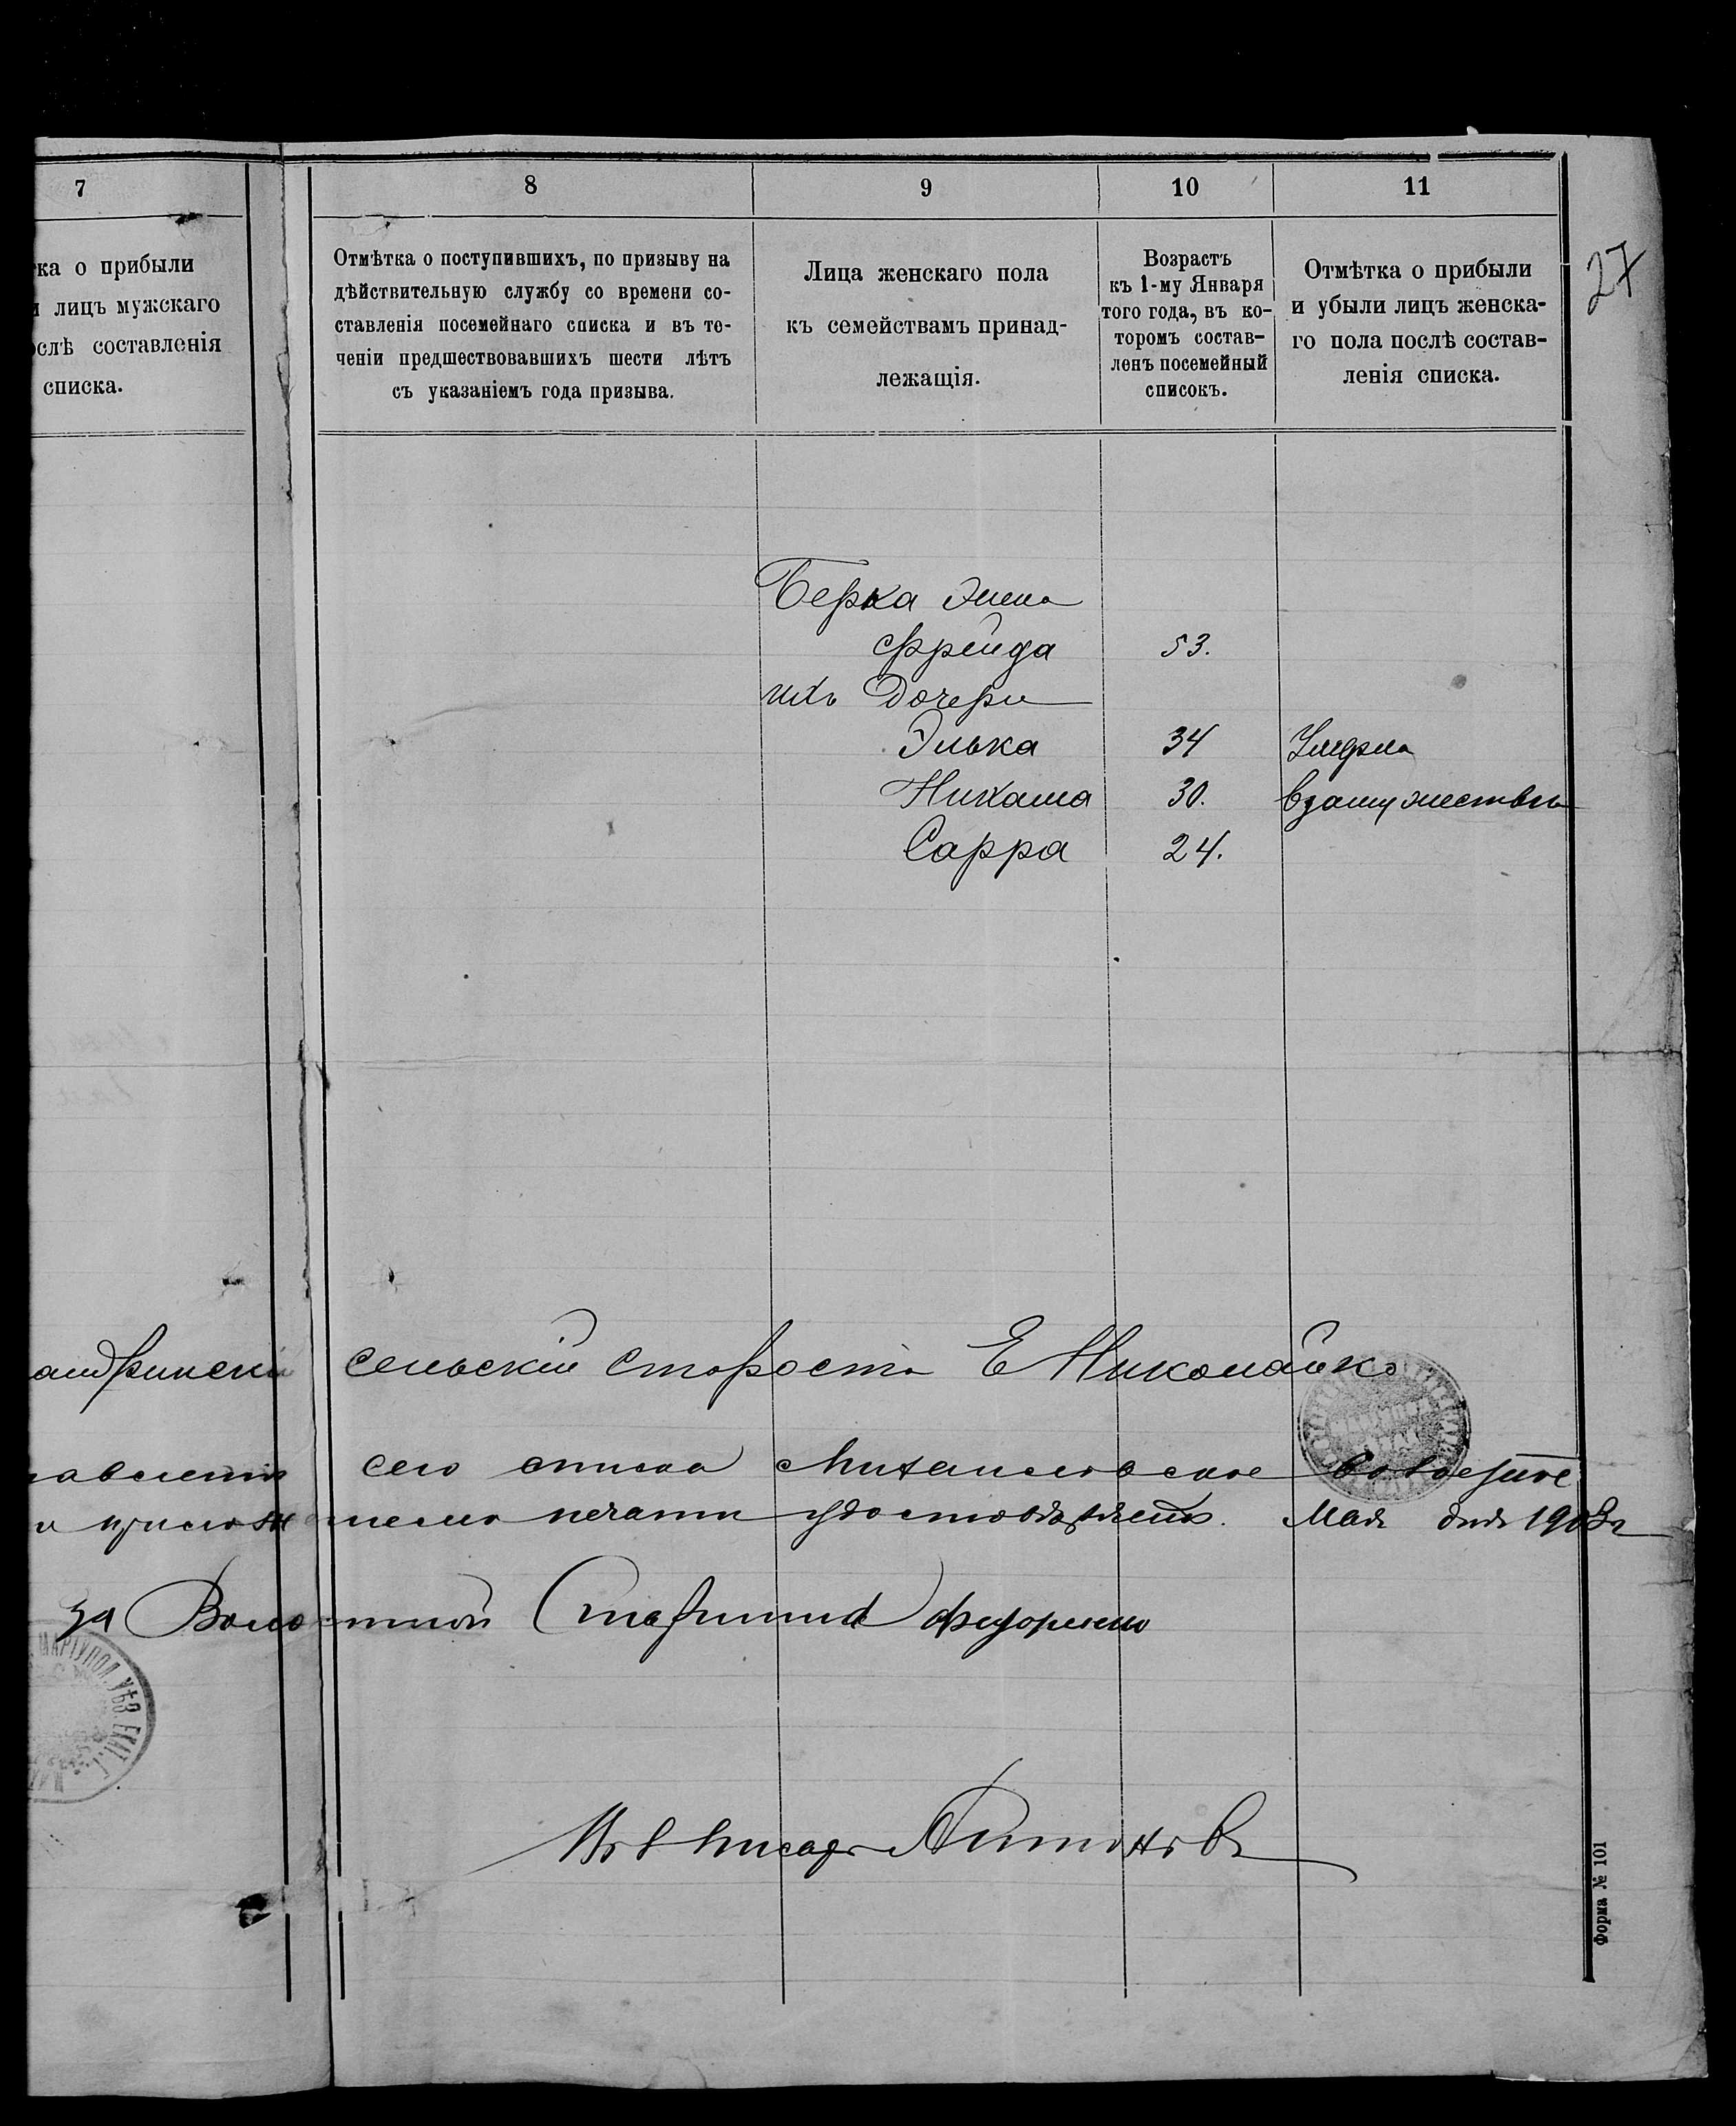 7
8
9
10
11
27
ка о прибыли
и лицъ мужскаго
ослѣ составленія
списка.
Отмѣтка о поступившихъ, по призыву на
дѣйствительную службу со времени со-
ставленія посемейнаго списка и въ те-
ченіи предшествовавшихъ шести лѣтъ
съ указаніемъ года призыва.
Лица женскаго пола
къ семействамъ принад-
лежащія.
Возрастъ
къ 1-му Января
того года, въ ко-
торомъ состав-
ленъ посемейный
списокъ.
Отмѣтка о прибыли
и убыли лицъ женска-
го пола послѣ состав-
ленія списка.
Берка жена
Фрейда 53.
ихъ дочери
Элька 34 Умерла
Нихама 30. взамужествѣ
Сарра 24.
андринскій сельскій староста Е Николайко
сего списка Михайловское Волостное
и приложеніемъ печати удостовѣряетъ. Мая дня 1903 г
за Волостной Старшина Федоренко
МАРІУПОЛ. УѢЗ. ЕКАТ. Г.
Писарь
Форма № 101